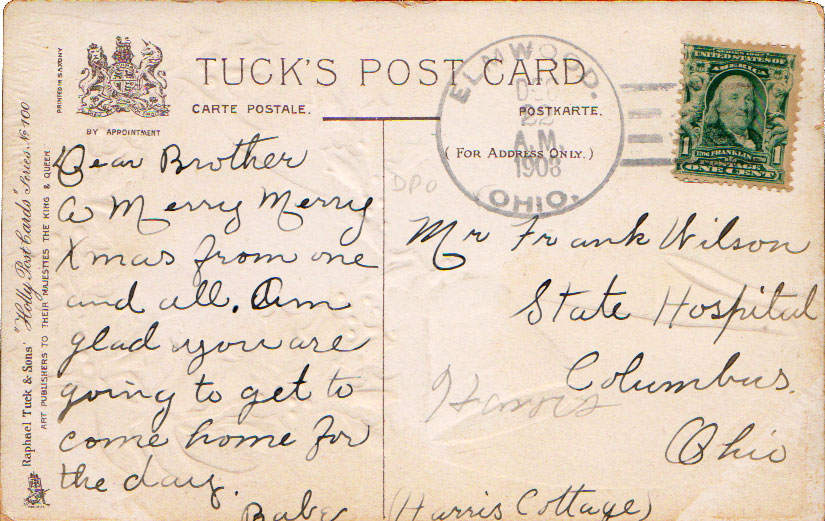 TUCK'S POST CARD
CARTE POSTALE.
POSTKARTE.
BY APPOINTMENT
(FOR ADDRESS ONLY.)
PRINTED IN SAXONY
Raphael Tuck & Sons' "Holly Post Cards" Series No 100
ART PUBLISHERS TO THEIR MAJESTIES THE KING & QUEEN
ELMWOOD,
DEC
22
A.M.
1908
OHIO.
UNITED STATES OF
AMERICA
1 1
FRANKLIN
POSTAGE
ONE CENT
DPO
Dear Brother
A Merry Merry
Xmas from one
and all. Am
glad you are
going to get to
come home for
the day.
Babe
Mr Frank Wilson
State Hospital
Columbus.
Harris
Ohio
(Harris Cottage)